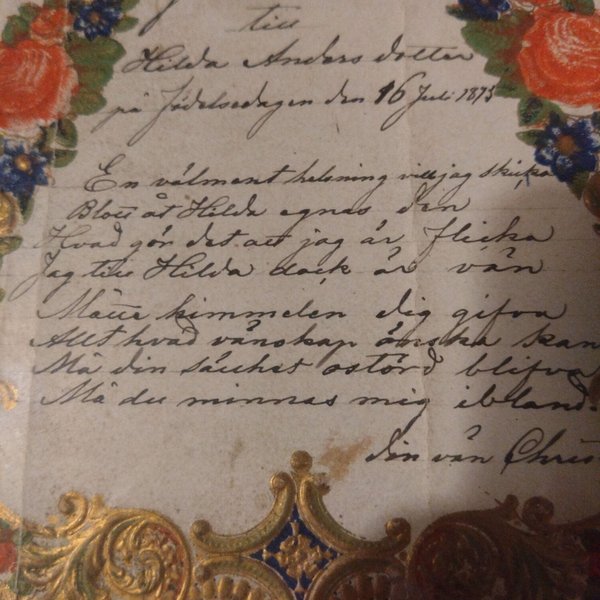 till
Hilda Anders dotter
på Födelsedagen den 16 Juli 1875
En välment helsning vill jag skicka
Blott åt Hilda egnas den
Hvad gör det att jag är flicka
Jag till Hilda dock är vän
Måtte himmelen dig gifva
Allt hvad vänskap önska kan
Må din sällhet ostörd blifva
Må du minnas mig ibland.
din vän Chris